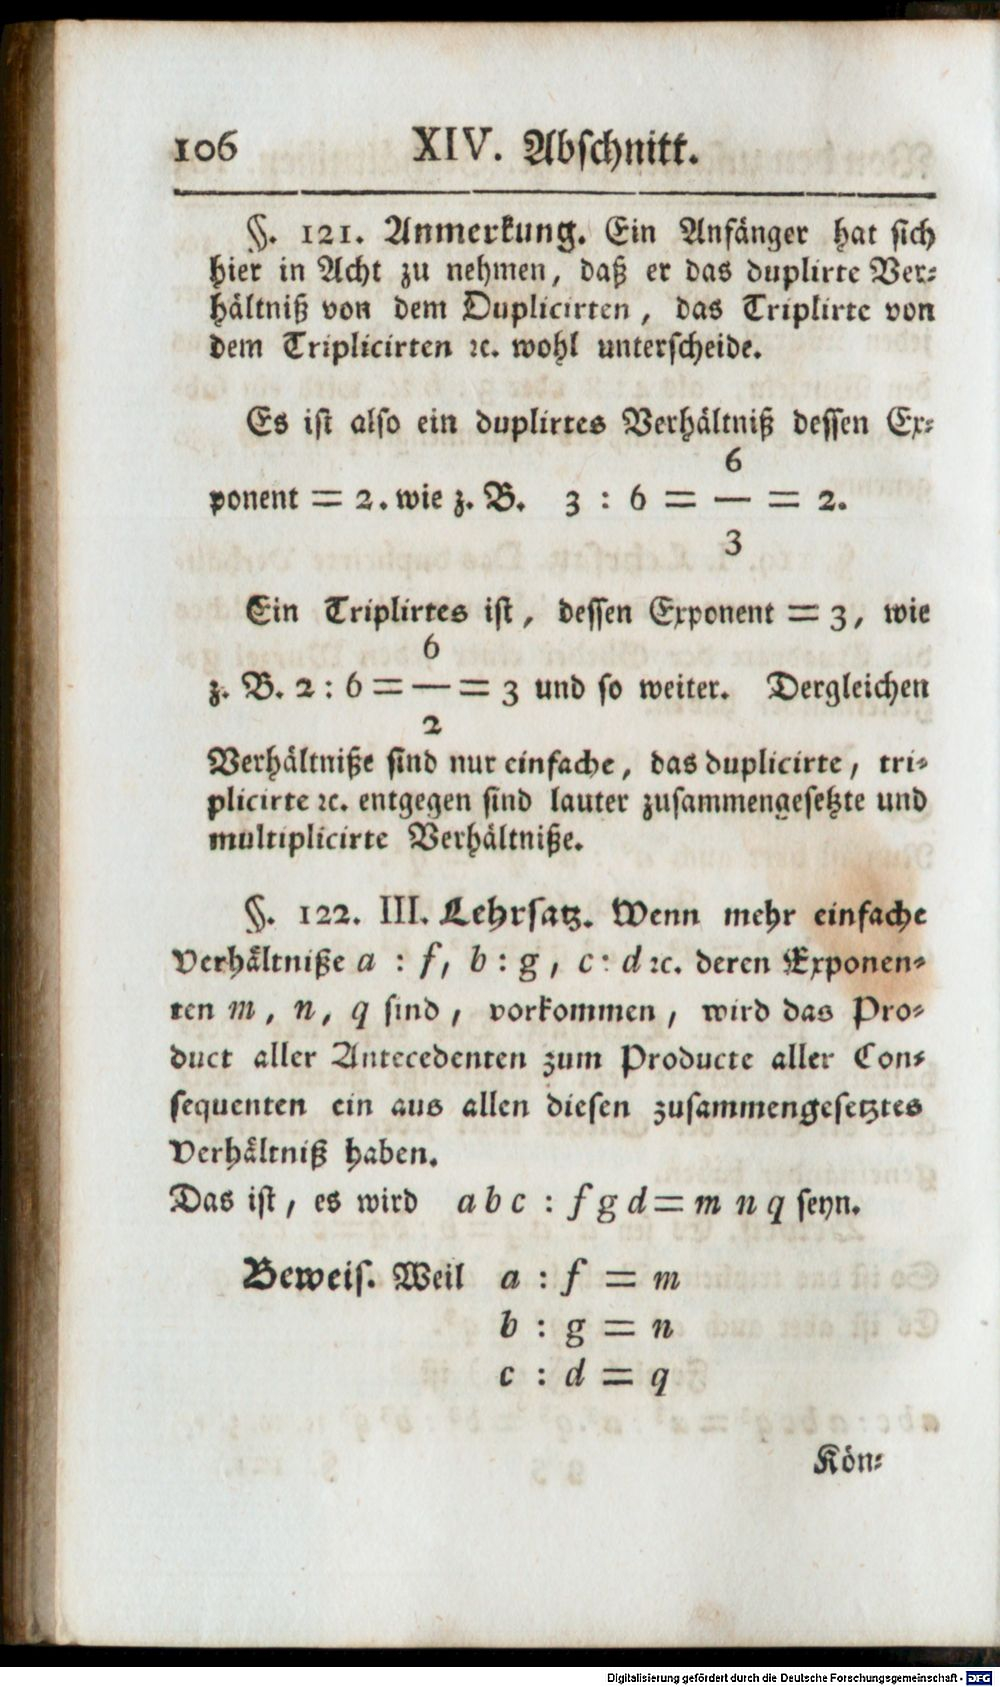 106 XIV. Abschnitt.
§. 121. Anmerkung. Ein Anfänger hat sich
hier in Acht zu nehmen, daß er das duplirte Ver⸗
hältniß von dem Duplicirten, das Triplirte von
dem Triplicirten ꝛc. wohl unterscheide.
Es ist also ein duplirtes Verhältniß dessen Ex⸗
6
ponent = 2. wie z. B. 3 : 6 = — = 2.
3
Ein Triplirtes ist, dessen Exponent = 3, wie
6
z. B. 2 : 6 = — = 3 und so weiter. Dergleichen
2
Verhältniße sind nur einfache, das duplicirte, tri⸗
plicirte ꝛc. entgegen sind lauter zusammengesetzte und
multiplicirte Verhältniße.
§. 122. III. Lehrsatz. Wenn mehr einfache
Verhältniße a : f, b : g, c : d ꝛc. deren Exponen⸗
ten m, n, q sind, vorkommen, wird das Pro⸗
duct aller Antecedenten zum Producte aller Con⸗
sequenten ein aus allen diesen zusammengesetztes
Verhältniß haben.
Das ist, es wird a b c : f g d = m n q seyn.
Beweis. Weil a : f = m
b : g = n
c : d = q
Kön⸗
Digitalisierung gefördert durch die Deutsche Forschungsgemeinschaft - DFG